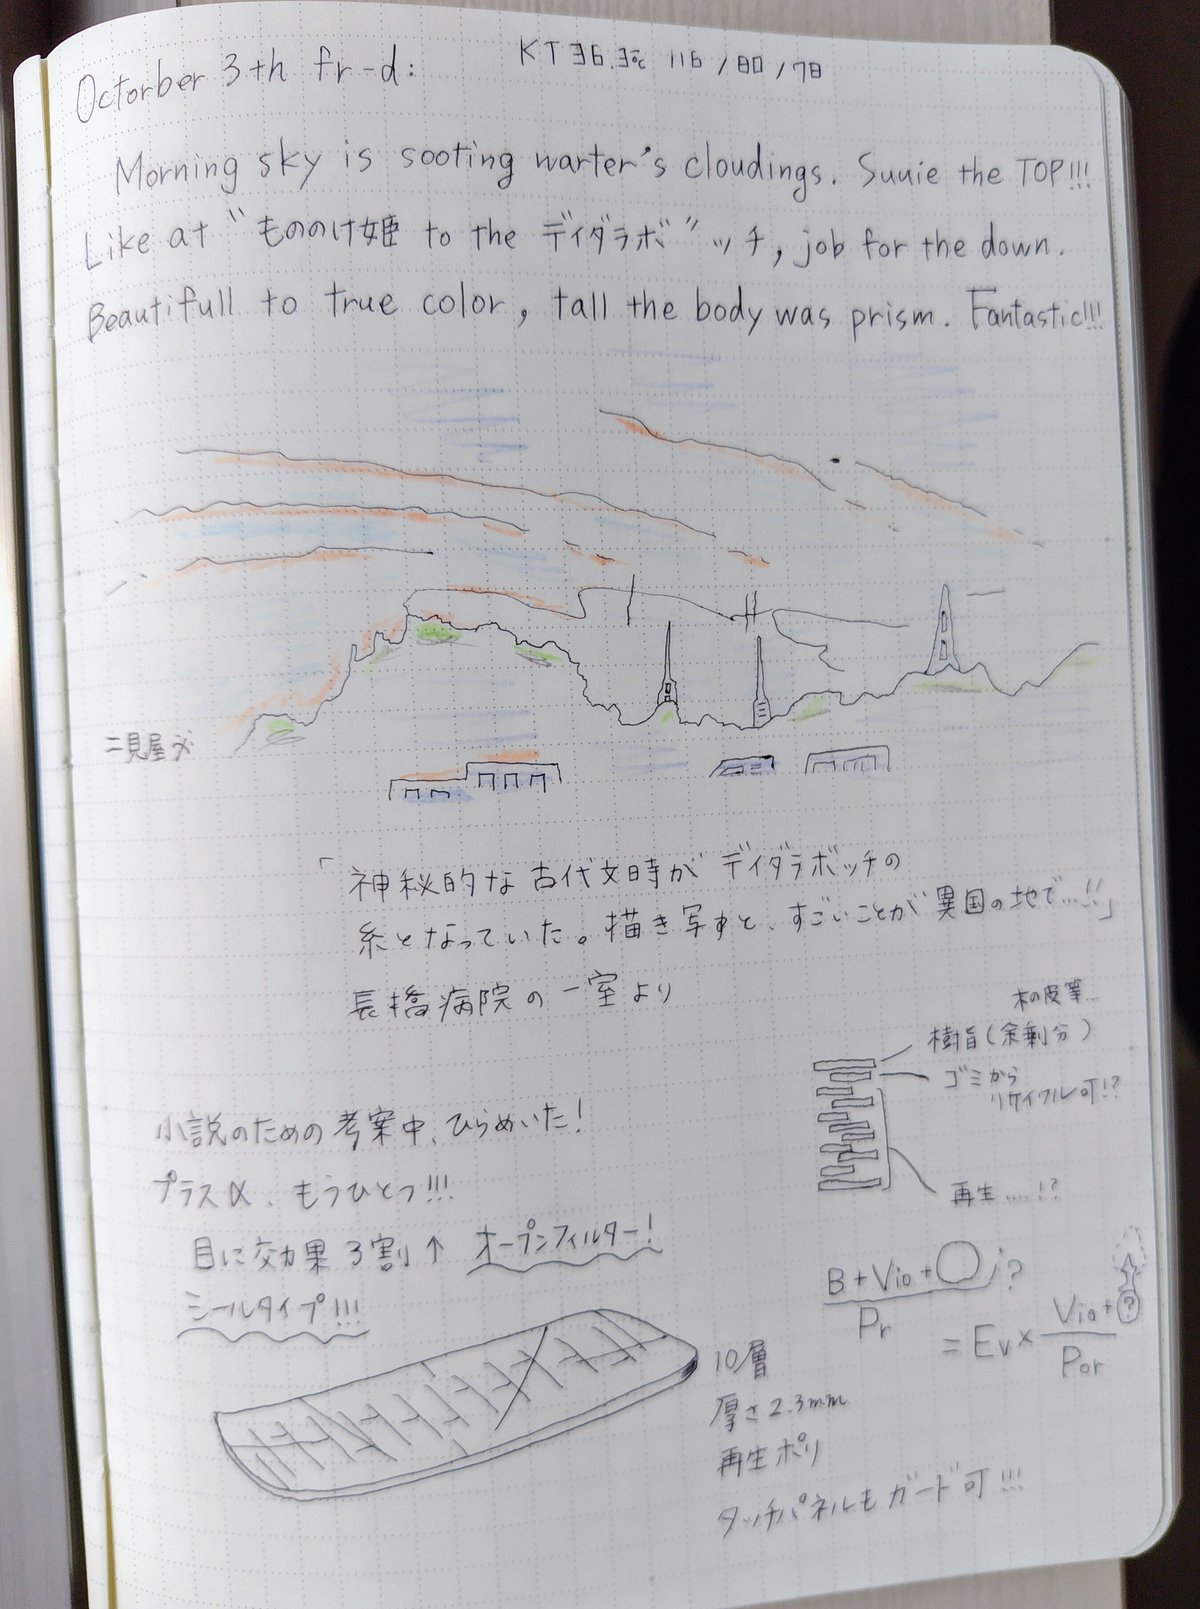 Octorber 3th fr-d:
KT 36.3℃ 116/80/78
Morning sky is sooting warter's cloudings. Suuie the TOP!!!
Like at "もののけ姫 to the ディダラボ"ッチ, job for the down.
Beautifull to true color, tall the body was prism. Fantastic!!!
二見屋
「神秘的な古代文時がディダラボッチの
糸となっていた。描き写すと、すごいことが異国の地で…!!」
長橋病院の一室より
木の皮等…
樹脂(余剰分)
ゴミから
リサイクル可!?
再生……!?
小説のための考案中、ひらめいた!
プラスα、もうひとつ!!!
目に効果3割↑ オープンフィルター!
シールタイプ!!!
B+Vio+○;?
Pr
=Ev×
Vio+?
Por
10層
厚さ2.3mm
再生ポリ
タッチパネルもガード可!!!